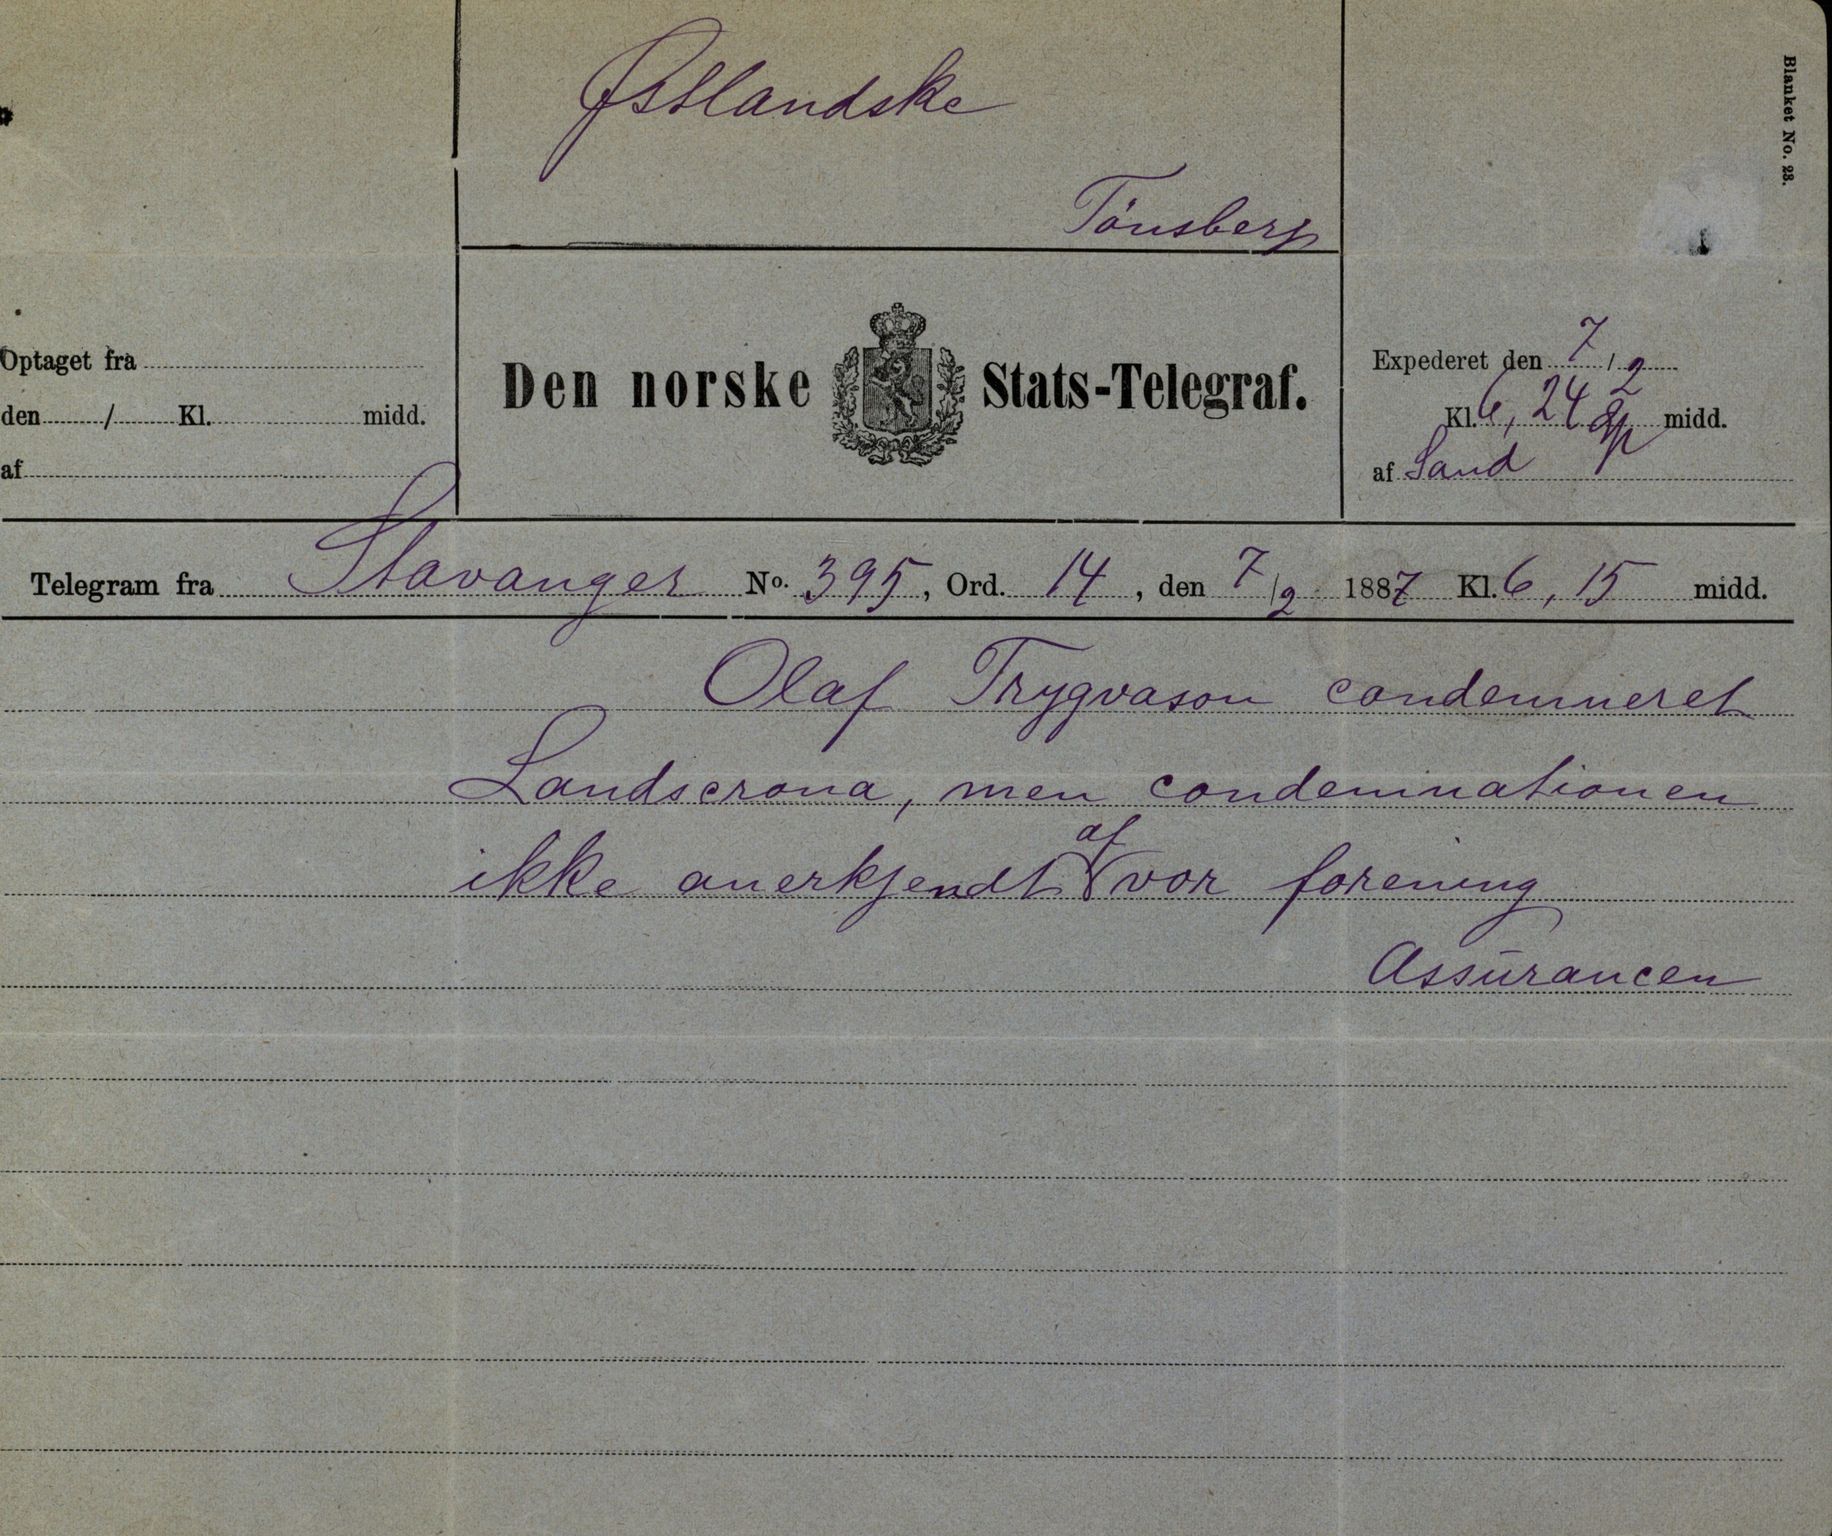 Østlandske
Tönsberg
Blanket No. 23.
Optaget fra
den / Kl. midd.
af
Den norske Stats-Telegraf.
Expederet den 7/2
Kl. 6,24 midd.
af Sand
Telegram fra Stavanger No. 395, Ord. 14, den 7/2 1887 Kl. 6,15 midd.
Olaf Trygvason condemneret
Landscrona, men condemnationen
ikke anerkjendt af vor forening
Assurancen